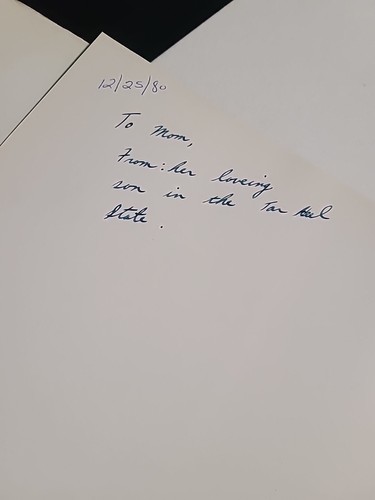 12/25/80
To Mom,
From: her loveing
son in the Tar Heel
State.